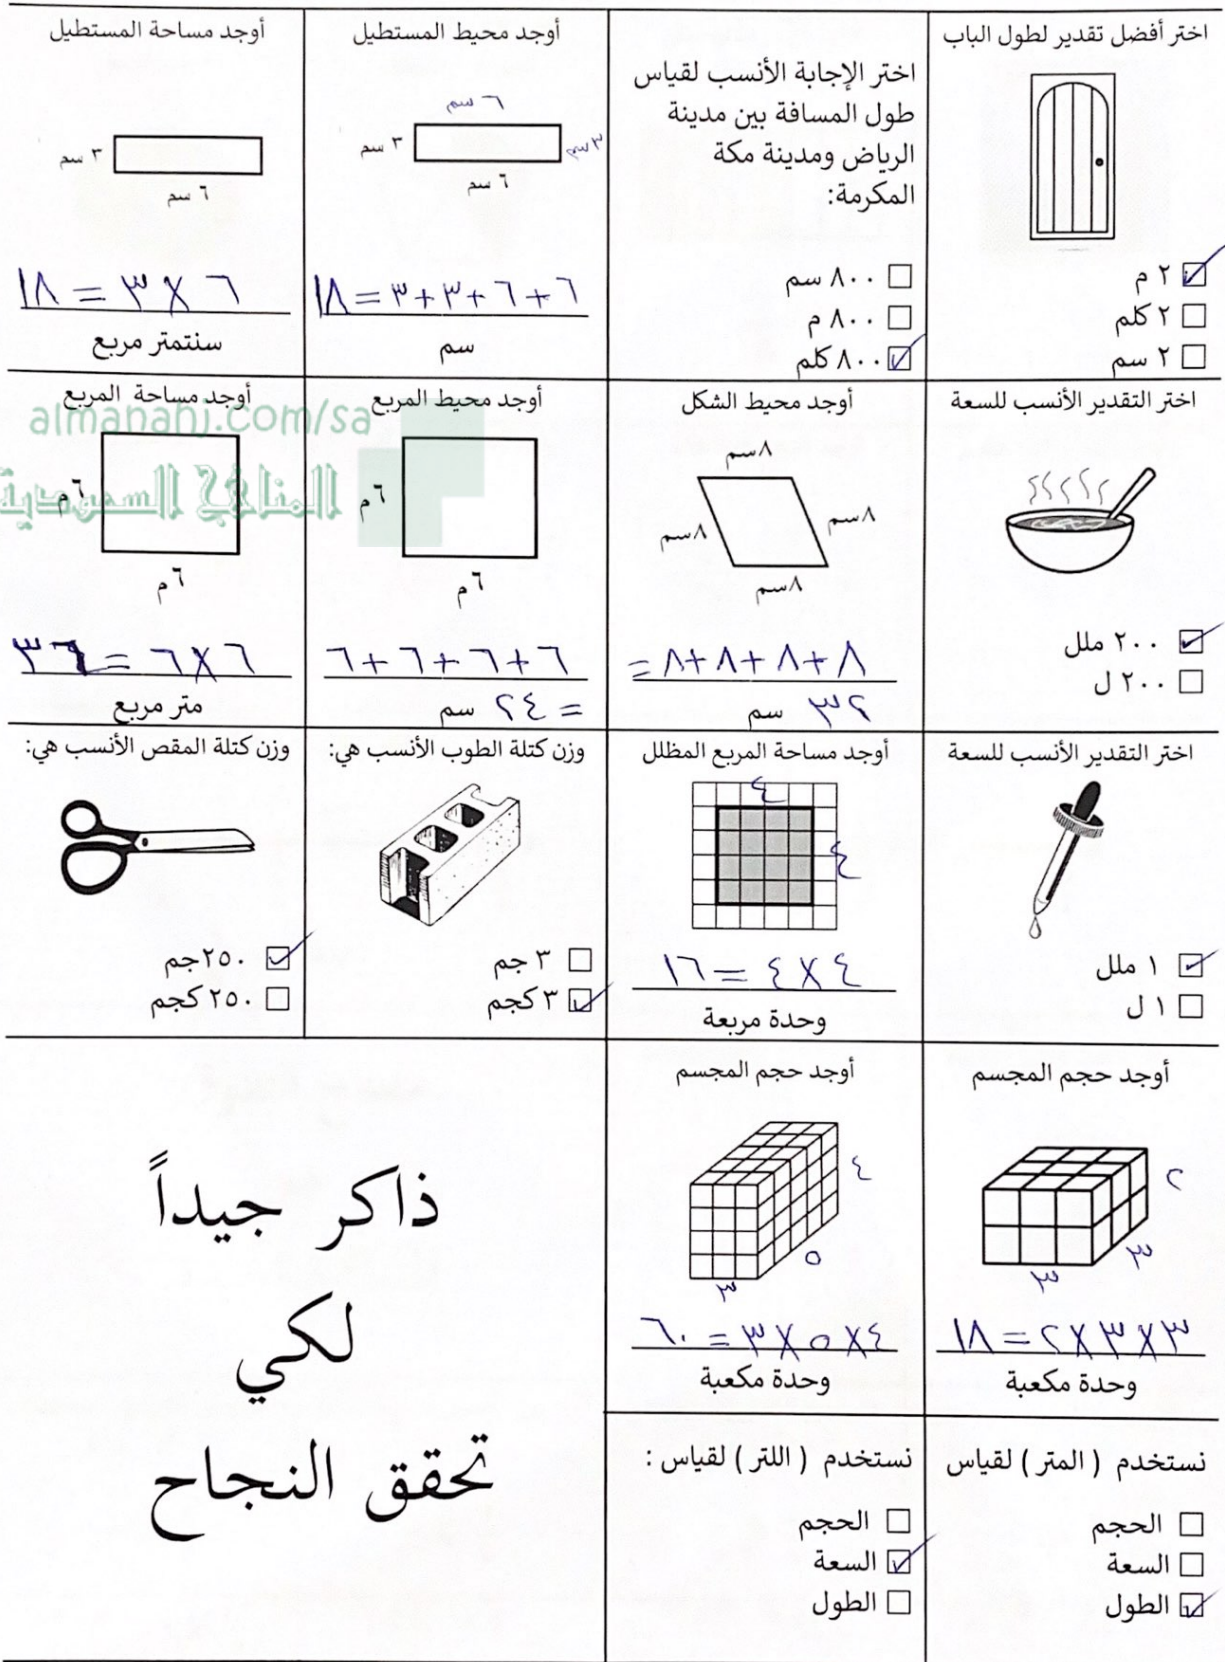 اختر أفضل تقدير لطول الباب
٢ م
٢ كلم
٢ سم
اختر الإجابة الأنسب لقياس
طول المسافة بين مدينة
الرياض ومدينة مكة
المكرمة:
٨٠٠ سم
٨٠٠ م
٨٠٠ كلم
أوجد محيط المستطيل
٦ سم
٣ سم
٣ سم
٦ سم
٦+٦+٣+٣=١٨
سم
أوجد مساحة المستطيل
٣ سم
٦ سم
٦×٣=١٨
سنتمتر مربع
اختر التقدير الأنسب للسعة
٢٠٠ ملل
٢٠٠ ل
أوجد محيط الشكل
٨سم
٨سم
٨سم
٨سم
٨+٨+٨+٨=
٣٢ سم
أوجد محيط المربع
٦م
٦م
٦+٦+٦+٦
=٢٤ سم
أوجد مساحة المربع
٦م
٦م
٦×٦=٣٦
متر مربع
almanahj.com/sa
المناهج السعودية
اختر التقدير الأنسب للسعة
١ ملل
١ ل
أوجد مساحة المربع المظلل
٤
٤
٤×٤=١٦
وحدة مربعة
وزن كتلة الطوب الأنسب هي:
٣ جم
٣ كجم
وزن كتلة المقص الأنسب هي:
٢٥٠جم
٢٥٠ كجم
أوجد حجم المجسم
٢
٣
٣
٣×٣×٢=١٨
وحدة مكعبة
أوجد حجم المجسم
٤
٥
٣
٤×٥×٣=٦٠
وحدة مكعبة
ذاكر جيداً
لكي
تحقق النجاح
نستخدم ( المتر ) لقياس
الحجم
السعة
الطول
نستخدم ( اللتر ) لقياس :
الحجم
السعة
الطول